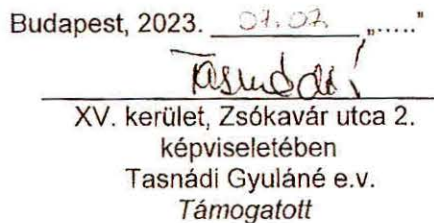 Budapest, 2023. 07.07. „....."
Tasnádi
XV. kerület, Zsókavár utca 2.
képviseletében
Tasnádi Gyuláné e.v.
Támogatott